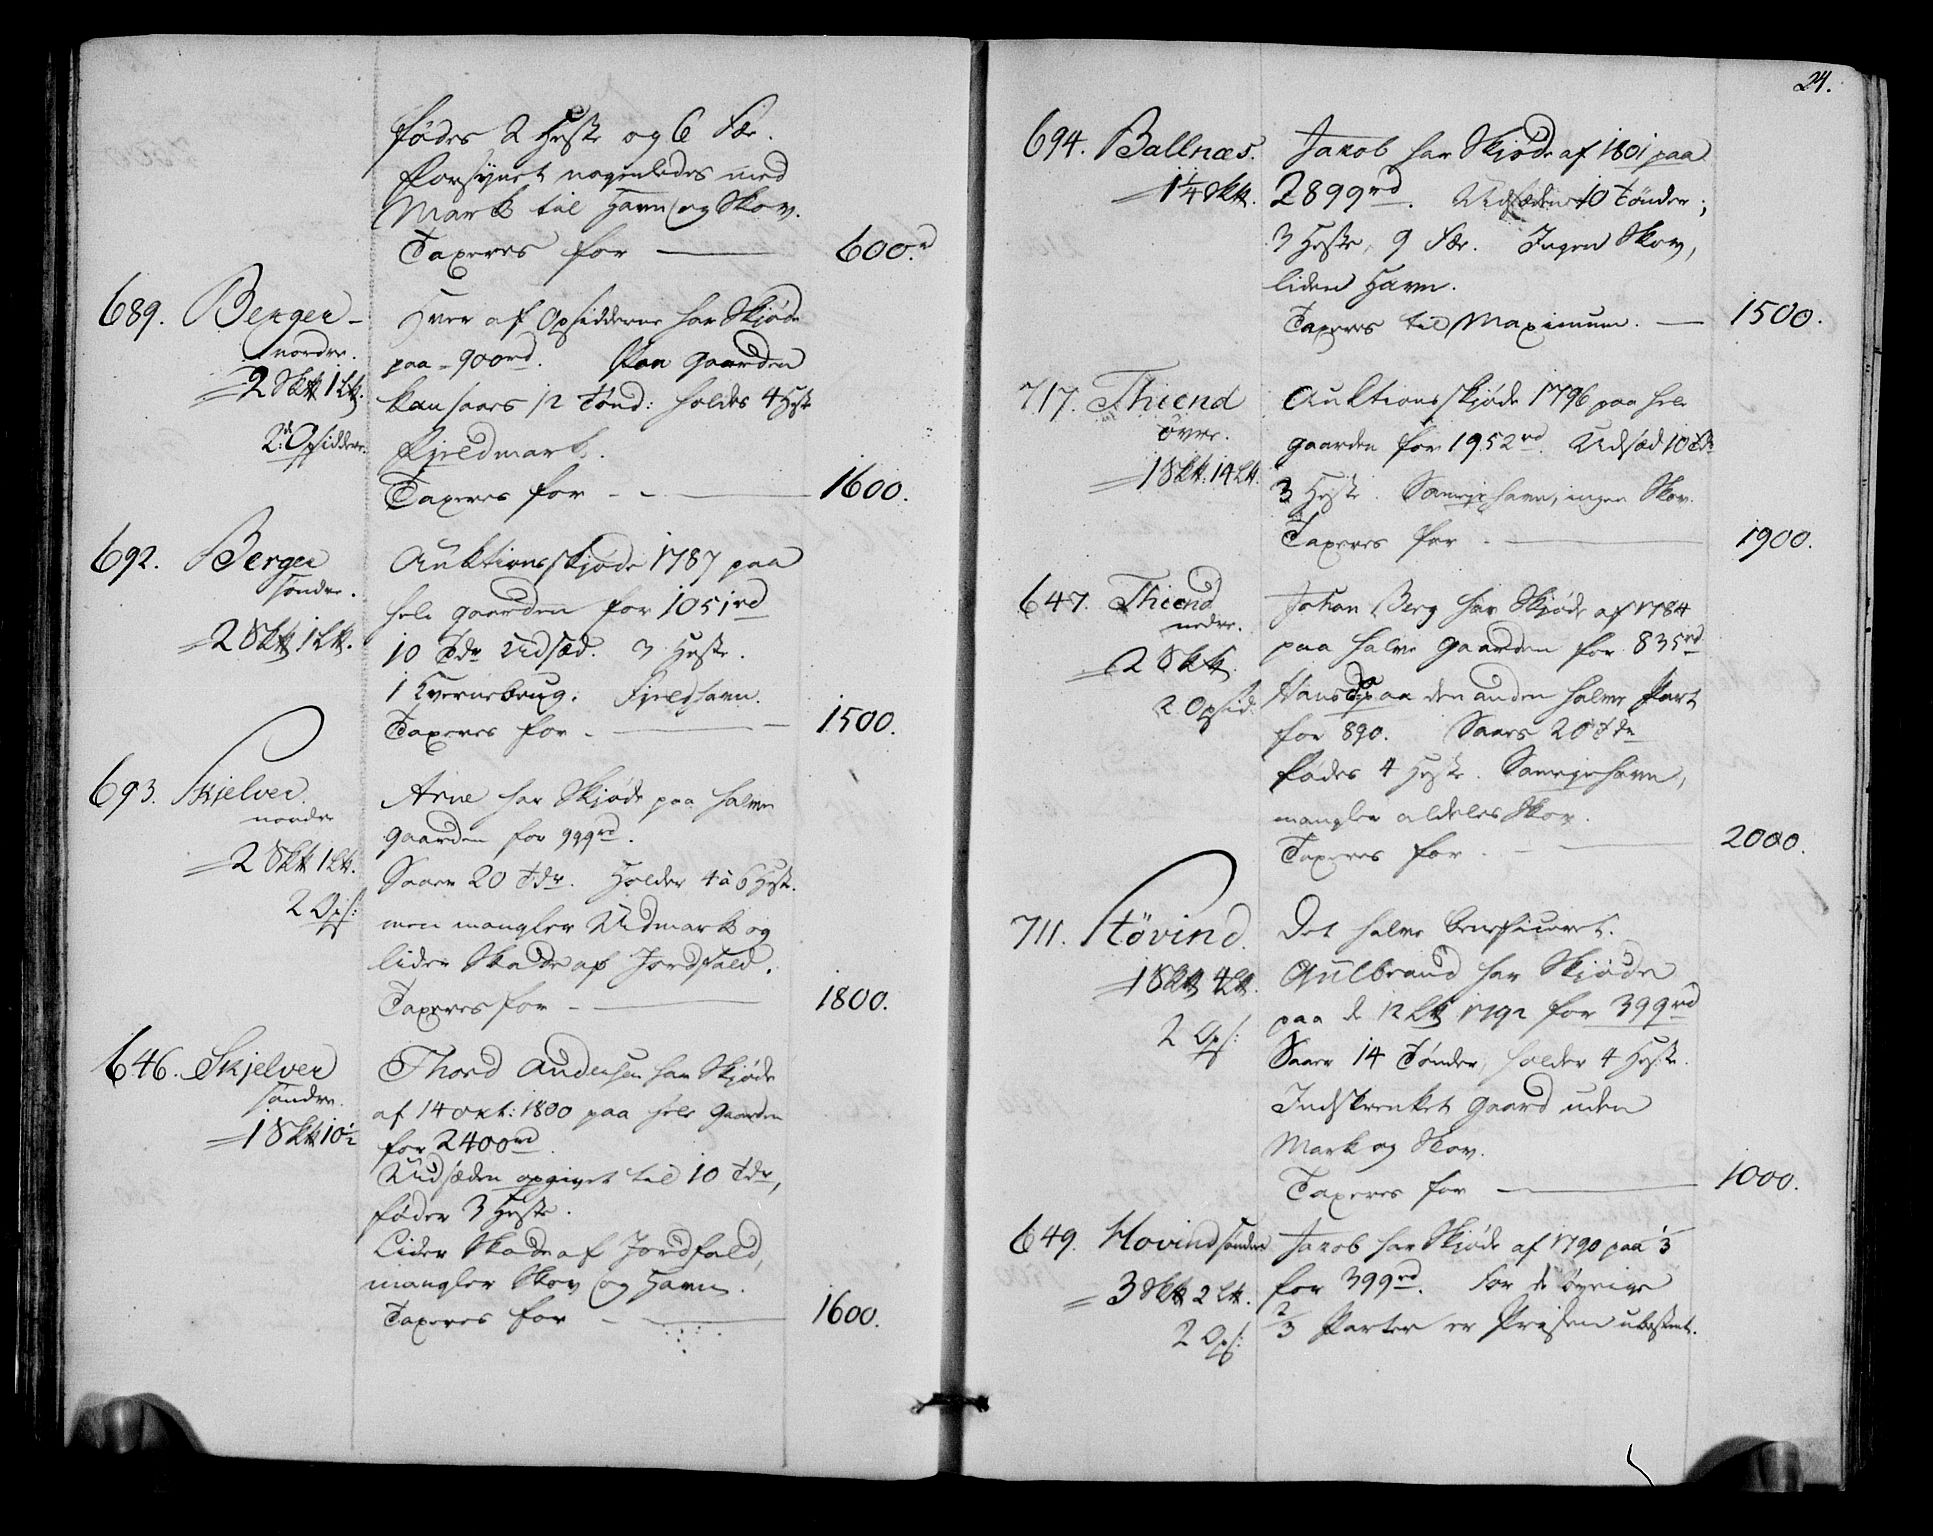 fødes 2 Heste og 6 Fæ.
Forsynet nogenledes med
Mark til Havn og Skov.
Taxeres for — 600rd
689. Berger
nordre.
2 Skt 1 Lt.
2de Opsiddere.
Hver af Opsidderne har Skjøde
paa 900rd. Paa Gaarden
kan saaes 12 Tønd: holdes 4 Heste
Fjeldmark.
Taxeres for — 1600.
692. Berger
søndre.
2 Skt 1 Lt.
Auktionsskjøde 1787 paa
hele Gaarden for 1051rd
10 Tdr Udsæd. 3 Heste.
1 Kvernebrug. Fjeldhavn.
Taxeres for — 1500.
693. Skjelver.
nordre
2 Skt 1 Lt.
2 Ops:
Arne har Skjøde paa halve
Gaarden for 999rd.
Saaer 20 Tdr. Holder 4 à 6 Hest.
men mangler Udmark og
lider Skade af Jordfald.
Taxeres for — 1800.
646. Skjelver
søndre.
1 Skt 10½
Thord Andersen har Skjøde
af 14 Okt: 1800 paa hele Gaarden
for 2400rd.
Udsæden opgivet til 10 Tdr,
føder 3 Heste.
Lider Skade af Jordfald,
mangler Skov og Havn.
Taxeres for — 1600.
24.
694. Ballnæs.
1¼ Skt.
Jakob har Skjøde af 1801 paa
2899rd. Udsæden 10 Tønder;
3 Heste, 9 Fæ. Ingen Skov,
liden Havn.
Taxeres til Maximum. — 1500.
717. Thiend
övre.
1 Skt. 14 Lt.
Auktionsskjøde 1796 paa hele
Gaarden for 1952rd. Udsæd 10 Tdr
3 Heste. havn, ingen Skov.
Taxeres for — 1900.
647. Thiend
nedre.
2 Skt.
2 Opsid:
Johan Berg har Skjøde af 1784
paa halve Gaarden for 835rd
Hans paa den anden halve Part
for 890. Saaes 20 Tdr
fødes 4 Heste. havn,
mangler aldeles Skov.
Taxeres for — 2000.
711. Støvind.
1 Skt 4 Lt.
2 Ops:
Det halve beneficeret.
Gulbrand har Skjøde
paa de 12 Lt 1792 for 399rd
Saaer 14 Tønder, holder 4 Heste.
Indskrenket Gaard uden
Mark og Skov.
Taxeres for — 1000.
649. Hovind søndre
3 Skt 2 Lt.
2 Ops:
Jakob har Skjøde af 1790 paa ⅓
for 399rd. For de øvrige
⅔ Parter er Prisen ubestemt.